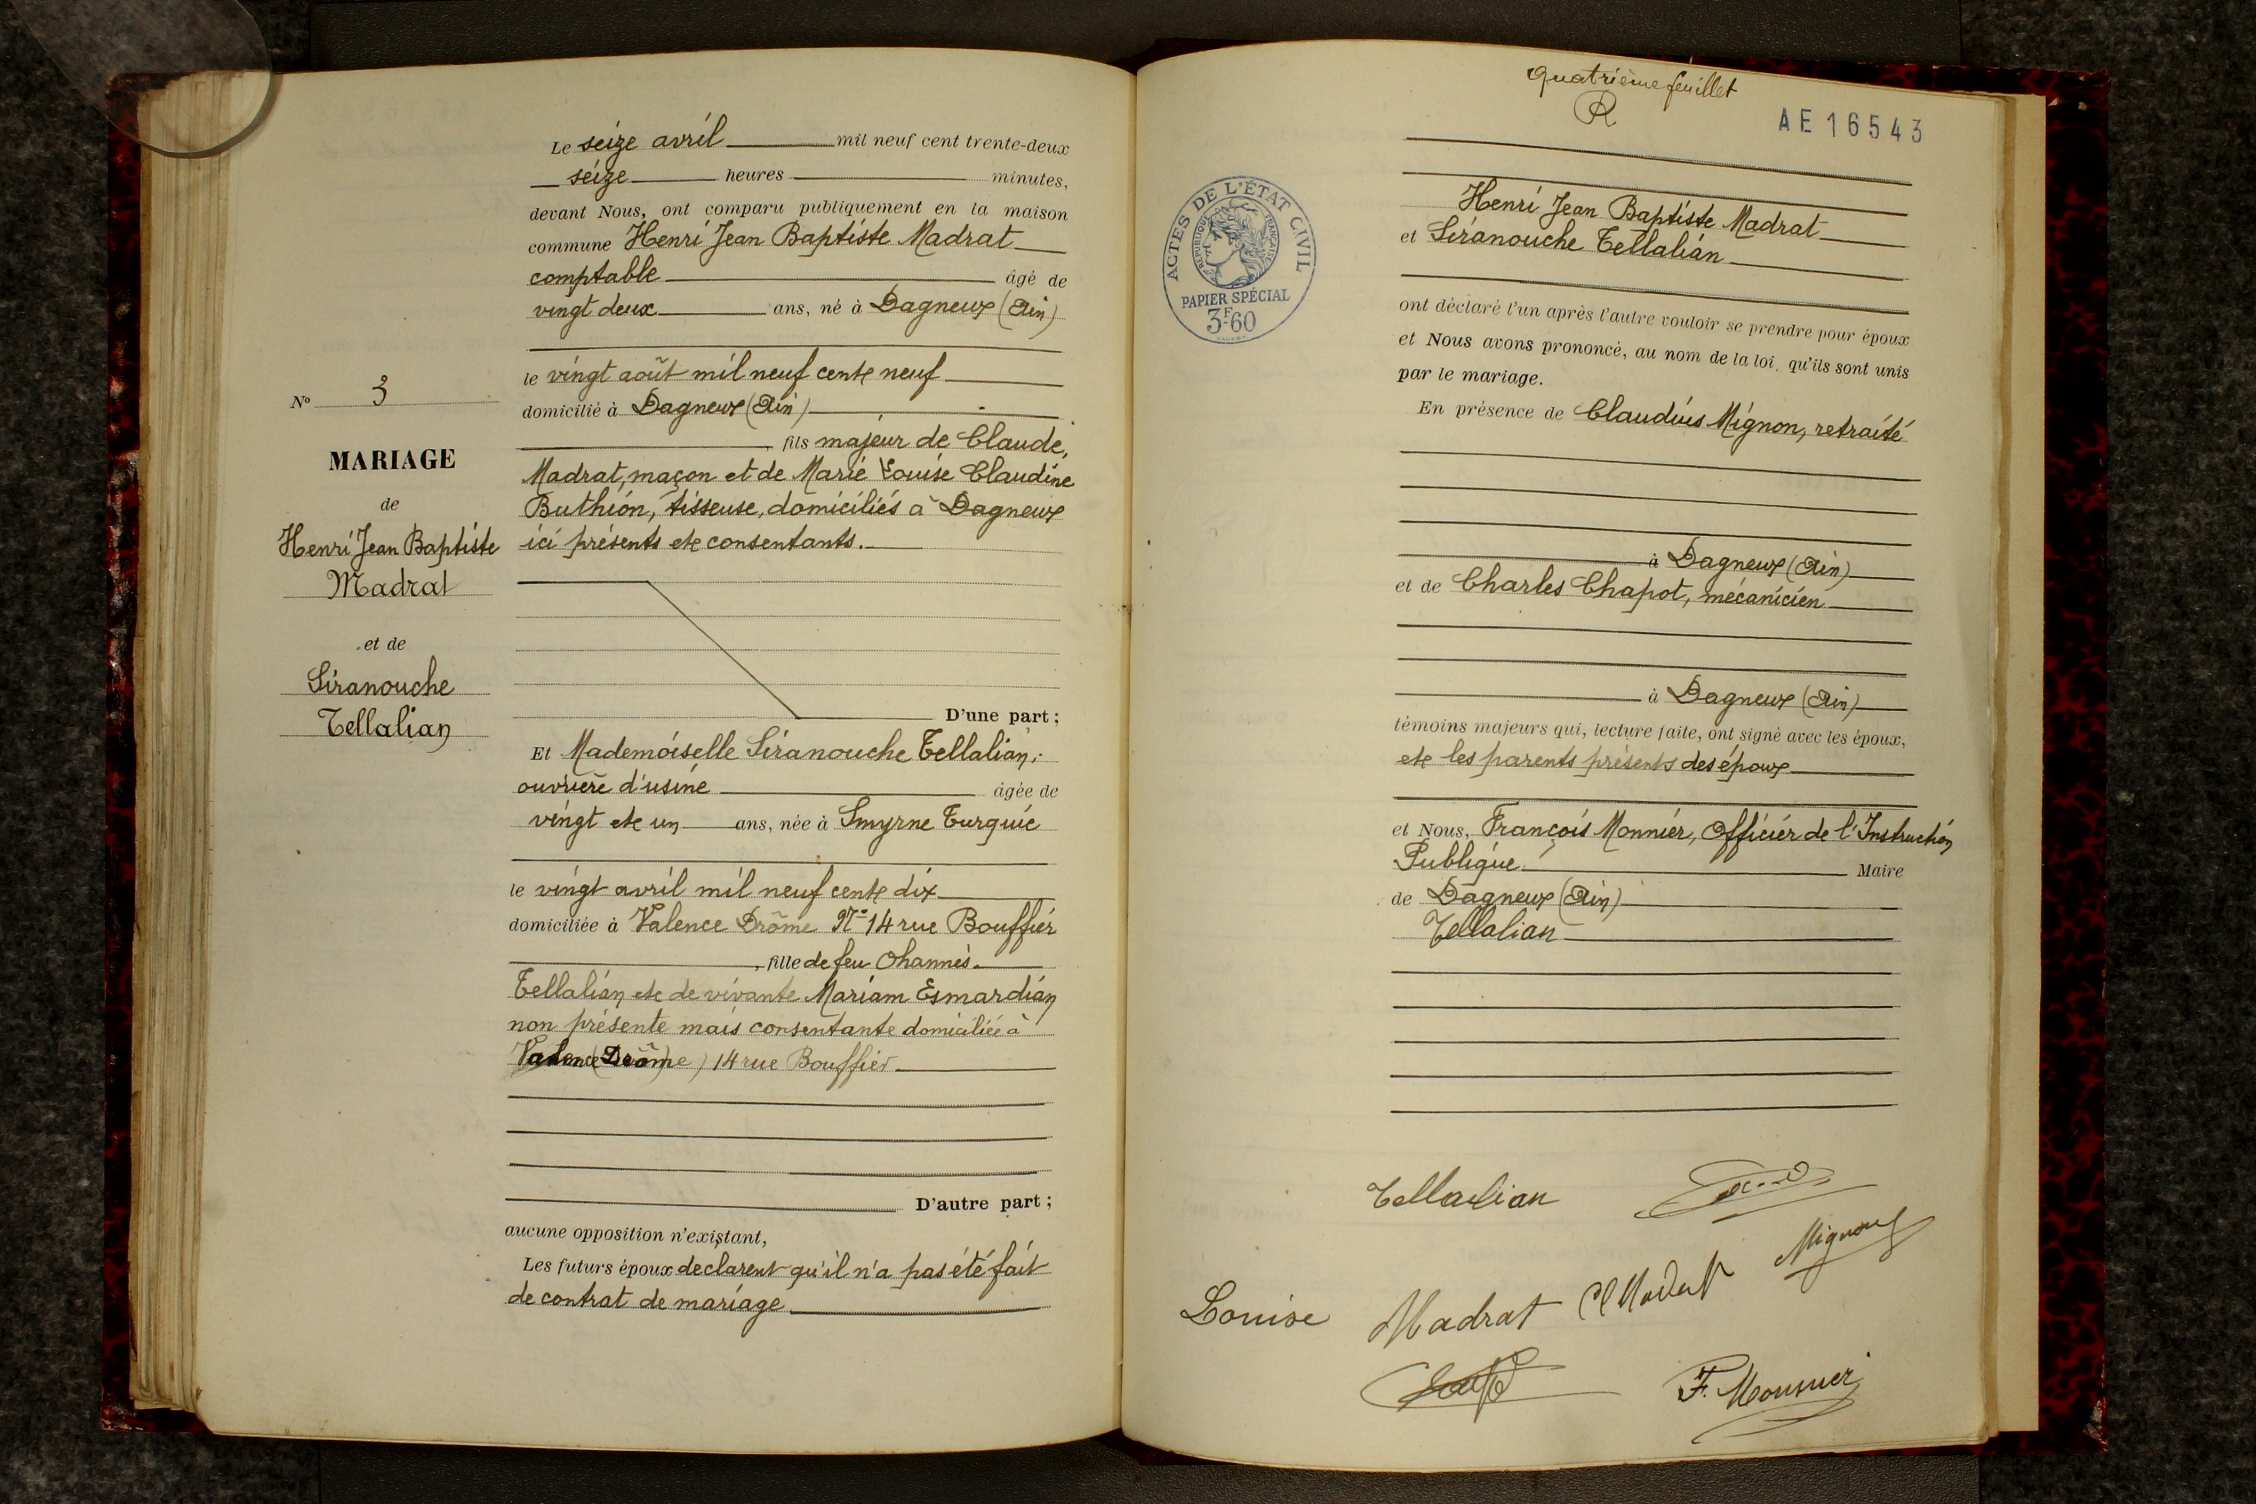 Le seize avril mil neuf cent trente-deux
seize heures minutes,
devant Nous, ont comparu publiquement en la maison
commune Henri Jean Baptiste Madrat
comptable âgé de
vingt deux ans, né à Dagneux (Ain)
le vingt août mil neuf cent neuf
domicilié à Dagneux (Ain)
, fils majeur de Claude,
Madrat, maçon et de Marie Louise Claudine
Buthion, tisseuse, domiciliés à Dagneux
ici présents et consentants.
D'une part ;
Et Mademoiselle Siranouche Tellalian,
ouvrière d'usine âgée de
vingt et un ans, née à Smyrne Turquie
le vingt avril mil neuf cent dix
domiciliée à Valence Drôme N° 14 rue Bouffier
, fille de feu Ohannès
Tellalian et de vivante Mariam Esmardian
non présente mais consentante domiciliée à
Valence (Drôme) 14 rue Bouffier
D'autre part ;
aucune opposition n'existant,
Les futurs époux declarent qu'il n'a pas été fait
de contrat de mariage
N° 3
MARIAGE
de
Henri Jean Baptiste
Madrat
et de
Siranouche
Tellalian
quatrième feuillet
AE 16543
ACTES DE L'ÉTAT CIVIL
RÉPUBLIQUE FRANÇAISE
PAPIER SPÉCIAL
3F60
Henri Jean Baptiste Madrat
et Siranouche Tellalian
ont déclaré l'un après l'autre vouloir se prendre pour époux
et Nous avons prononcé, au nom de la loi, qu'ils sont unis
par le mariage.
En présence de Claudius Mignon, retraité
à Dagneux (Ain)
et de Charles Chapot, mécanicien
à Dagneux (Ain)
témoins majeurs qui, lecture faite, ont signé avec les époux,
et les parents présents des époux
et Nous, François Monnier, Officier de l'Instruction
Publique Maire
de Dagneux (Ain)
Tellalian
Tellalian
Mignon
Louise Madrat Cl Madrat
F. Monnier